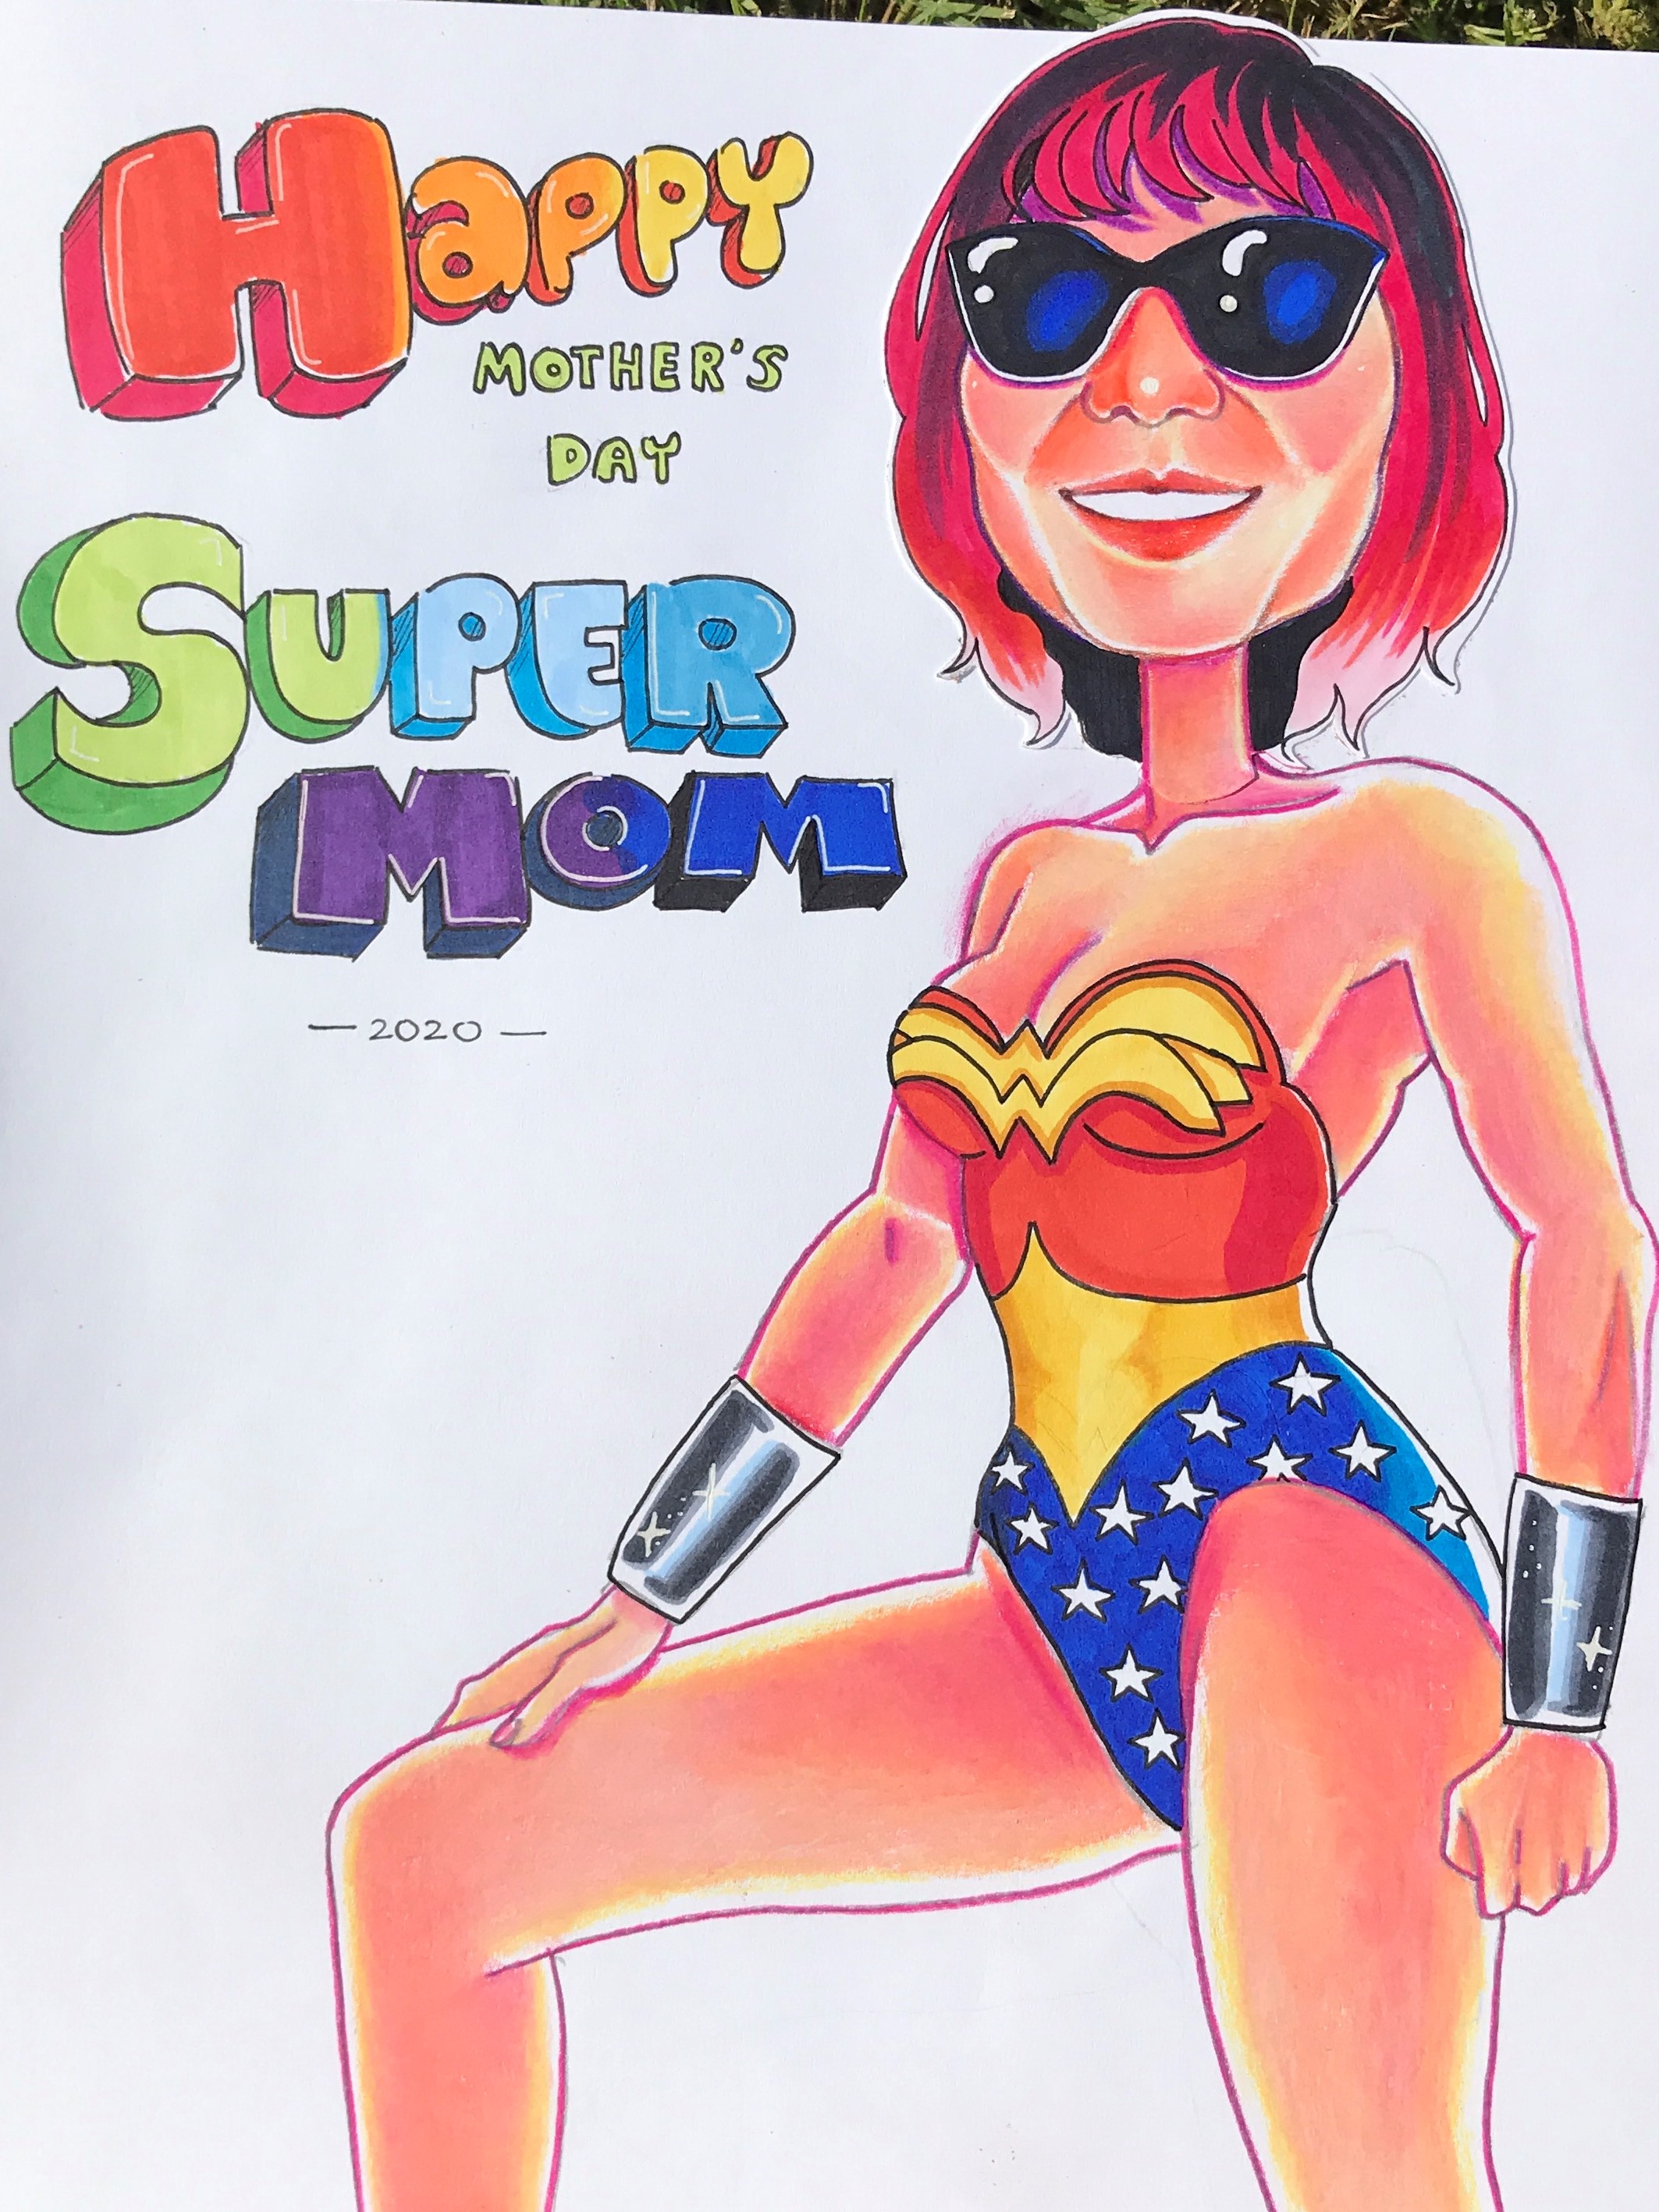 Happy
MOTHER'S
DAY
SUPER
MOM
— 2020 —